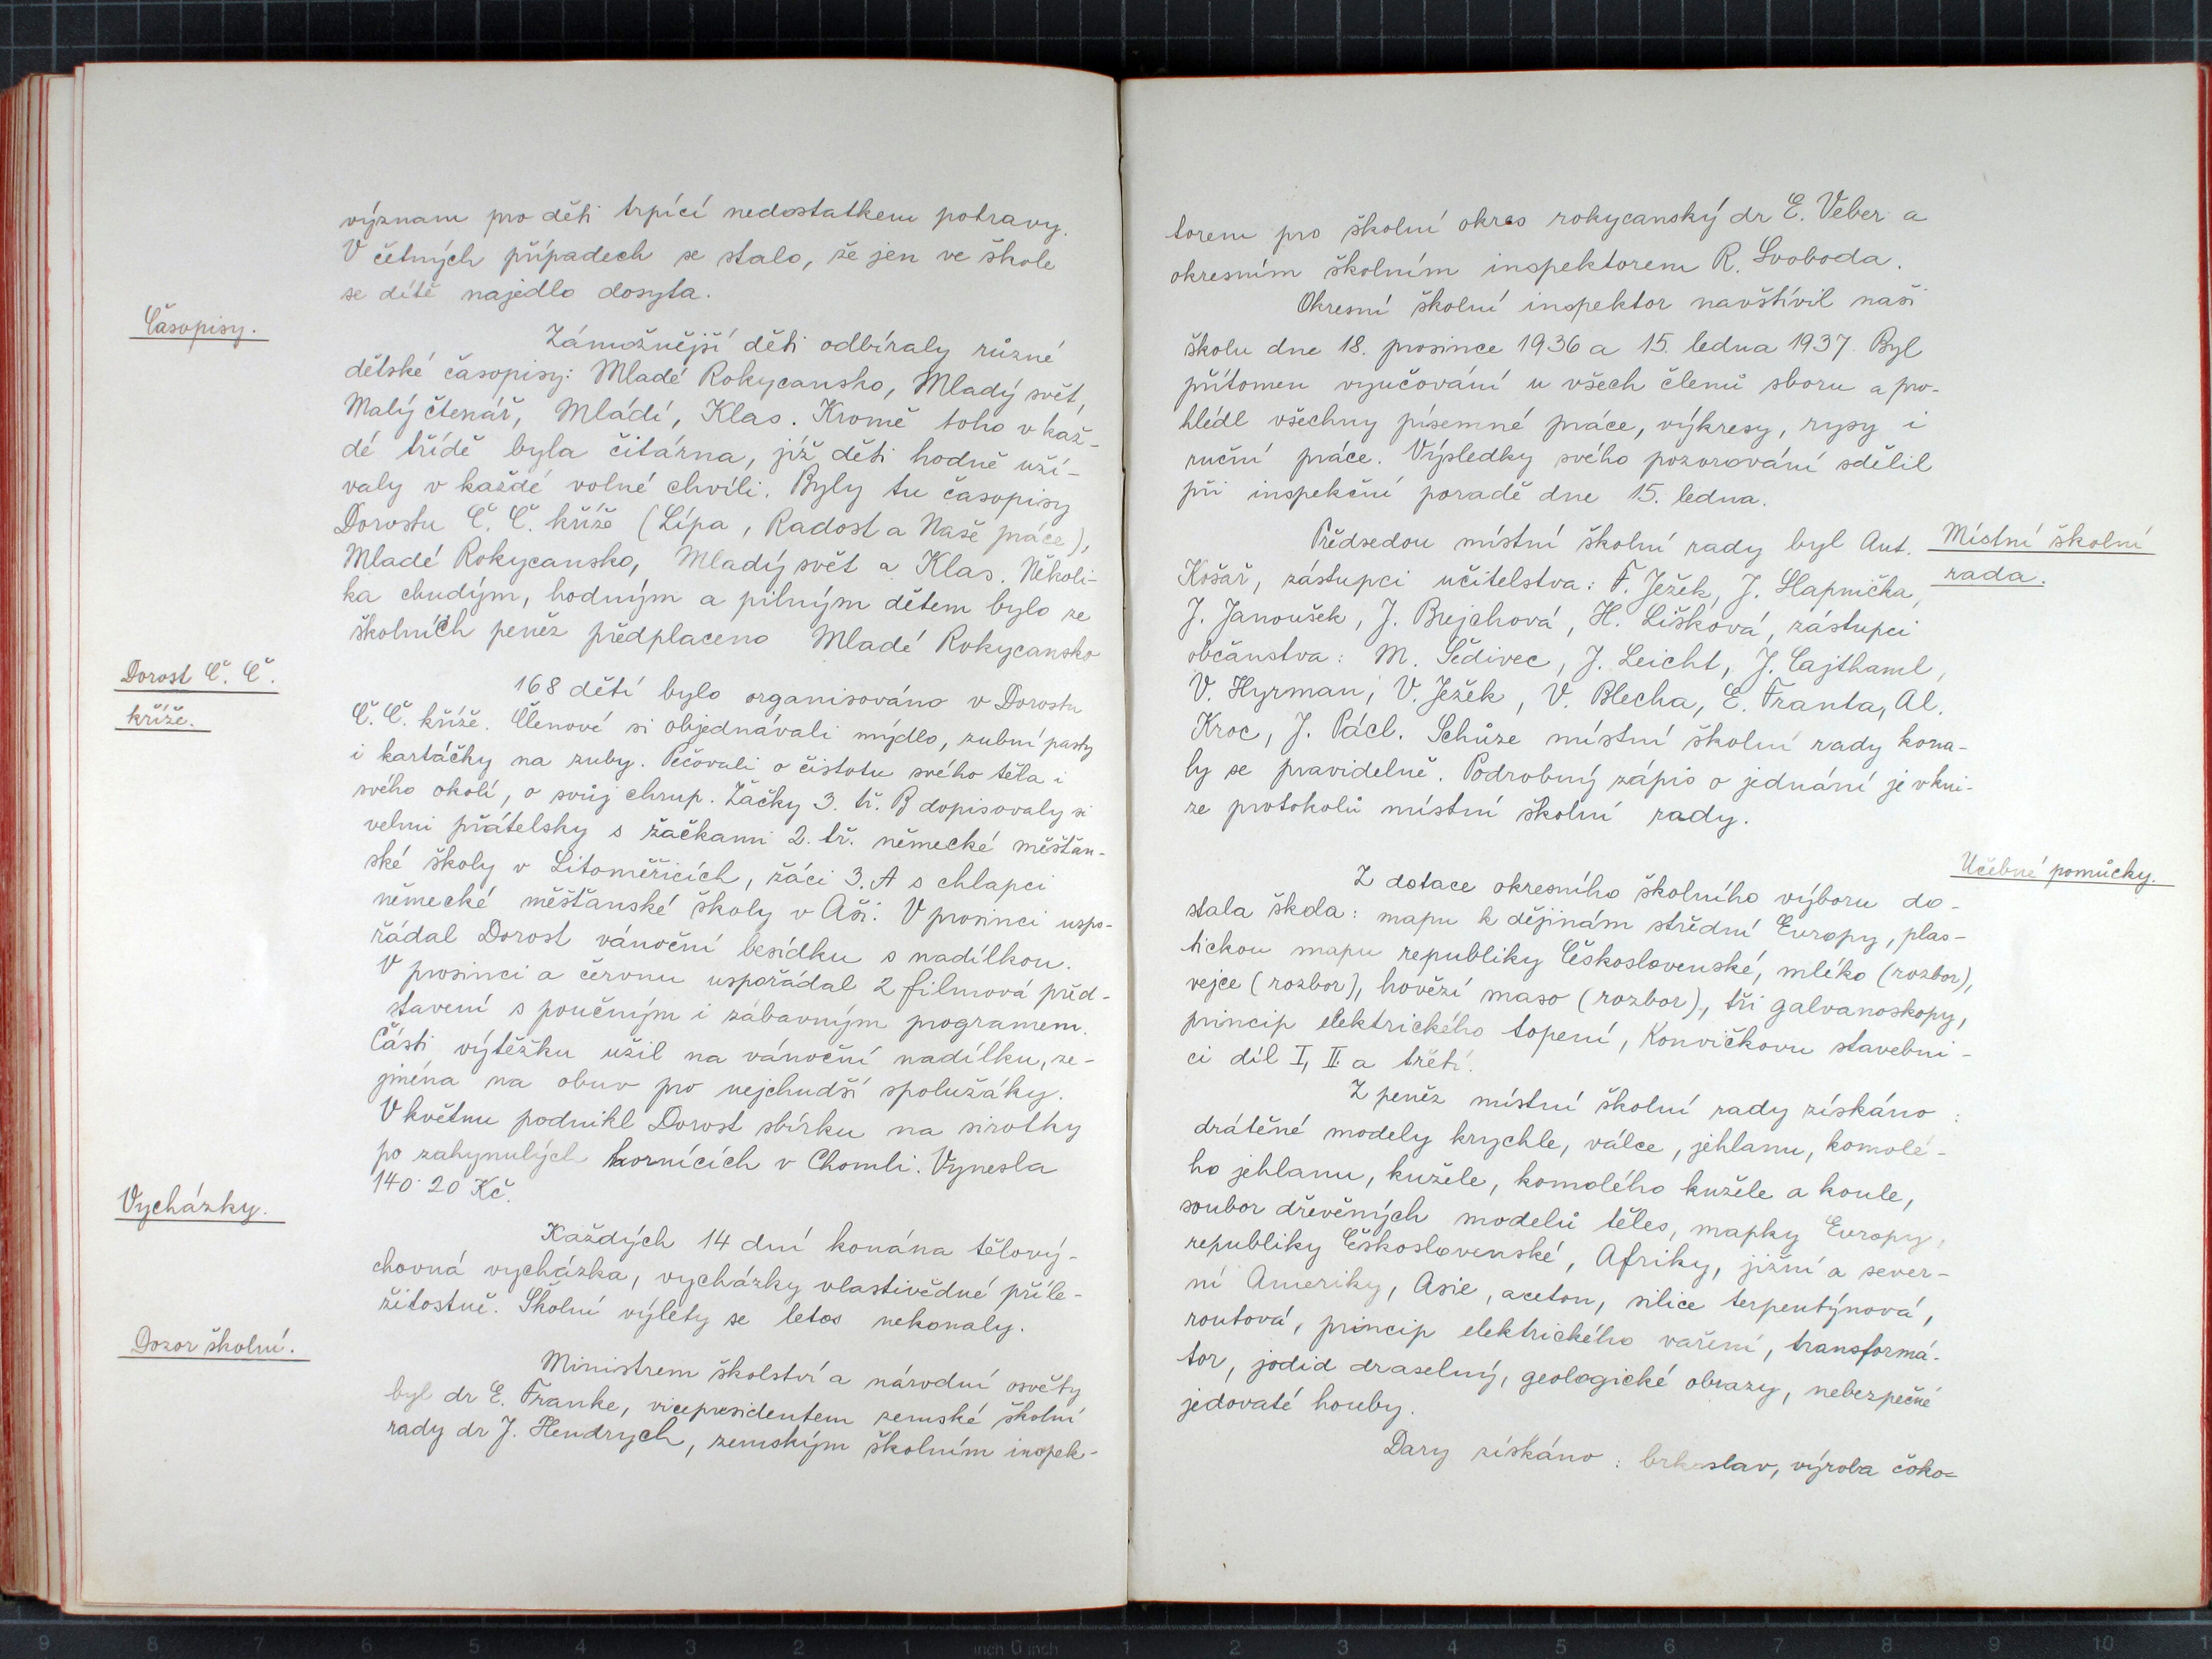 význam pro děti trpící nedostatkem potravy.
V četných případech se stalo, že jen ve škole
se dítě najedlo dosyta.
Časopisy.
Zámožnější děti odbíraly různé
dětské časopisy: Mladé Rokycansko, Mladý svět,
Malý čtenář, Mládí, Klas. Kromě toho v kaž-
dé třídě byla čitárna, již děti hodně uží-
valy v každé volné chvíli. Byly tu časopisy
Dorostu Č. Č. kříže (Lípa, Radost a Naše práce),
Mladé Rokycansko, Mladý svět a Klas. Několi-
ka chudým, hodným a pilným dětem bylo ze
školních peněz předplaceno Mladé Rokycansko
Dorost Č. Č.
kříže.
168 dětí bylo organisováno v Dorostu
Č. Č. kříže. Členové si objednávali mýdlo, zubní pasty
i kartáčky na zuby. Pečovali o čistotu svého těla i
svého okolí, o svůj chrup. Žačky 3. tř. B dopisovaly si
velmi přátelsky s žačkami 2. tř. německé měšťan-
ské školy v Litoměřicích, žáci 3. A s chlapci
německé měšťanské školy v Aši. V prosinci uspo-
řádal Dorost vánoční besídku s nadílkou.
V prosinci a červnu uspořádal 2 filmová před-
stavení s poučným i zábavným programem.
Části výtěžku užil na vánoční nadílku, ze-
jména na obuv pro nejchudší spolužáky.
V květnu podnikl Dorost sbírku na sirotky
po zahynulých hornících v Chomli. Vynesla
140·20 Kč.
Vycházky.
Každých 14 dní konána tělový-
chovná vycházka, vycházky vlastivědné příle-
žitostně. Školní výlety se letos nekonaly.
Dozor školní.
Ministrem školství a národní osvěty
byl dr E. Franke, vicepresidentem zemské školní
rady dr J. Hendrych, zemským školním inspek-
torem pro školní okres rokycanský dr E. Veber a
okresním školním inspektorem R. Svoboda.
Okresní školní inspektor navštívil naši
školu dne 18. prosince 1936 a 15. ledna 1937. Byl
přítomen vyučování u všech členů sboru a pro-
hlédl všechny písemné práce, výkresy, rysy i
ruční práce. Výsledky svého pozorování sdělil
při inspekční poradě dne 15. ledna.
Místní školní
rada.
Předsedou místní školní rady byl Ant.
Košař, zástupci učitelstva: F. Ježek, J. Slapnička,
J. Janoušek, J. Brejchová, H. Lišková, zástupci
občanstva: M. Šedivec, J. Leicht, J. Cajthaml,
V. Hyrman, V. Ježek, V. Blecha, E. Franta, Al.
Kroc, J. Pácl. Schůze místní školní rady kona-
ly se pravidelně. Podrobný zápis o jednání je v kni-
ze protokolů místní školní rady.
Učebné pomůcky.
Z dotace okresního školního výboru do-
stala škola: mapu k dějinám střední Evropy, plas-
tickou mapu republiky Československé, mléko (rozbor),
vejce (rozbor), hovězí maso (rozbor), tři galvanoskopy,
princip elektrického topení, Konvičkovu stavebni-
ci díl I, II a třetí.
Z peněz místní školní rady získáno:
drátěné modely krychle, válce, jehlanu, komolé-
ho jehlanu, kužele, komolého kužele a koule,
soubor dřevěných modelů těles, mapky Evropy,
republiky Československé, Afriky, jižní a sever-
ní Ameriky, Asie, aceton, silice terpentýnová,
routová, princip elektrického vaření, transformá-
tor, jodid draselný, geologické obrazy, nebezpečné
jedovaté houby.
Dary získáno: brkoslav, výroba čoko=
9 8 7 6 5 4 3 2 1 inch 0 inch 1 2 3 4 5 6 7 8 9 10